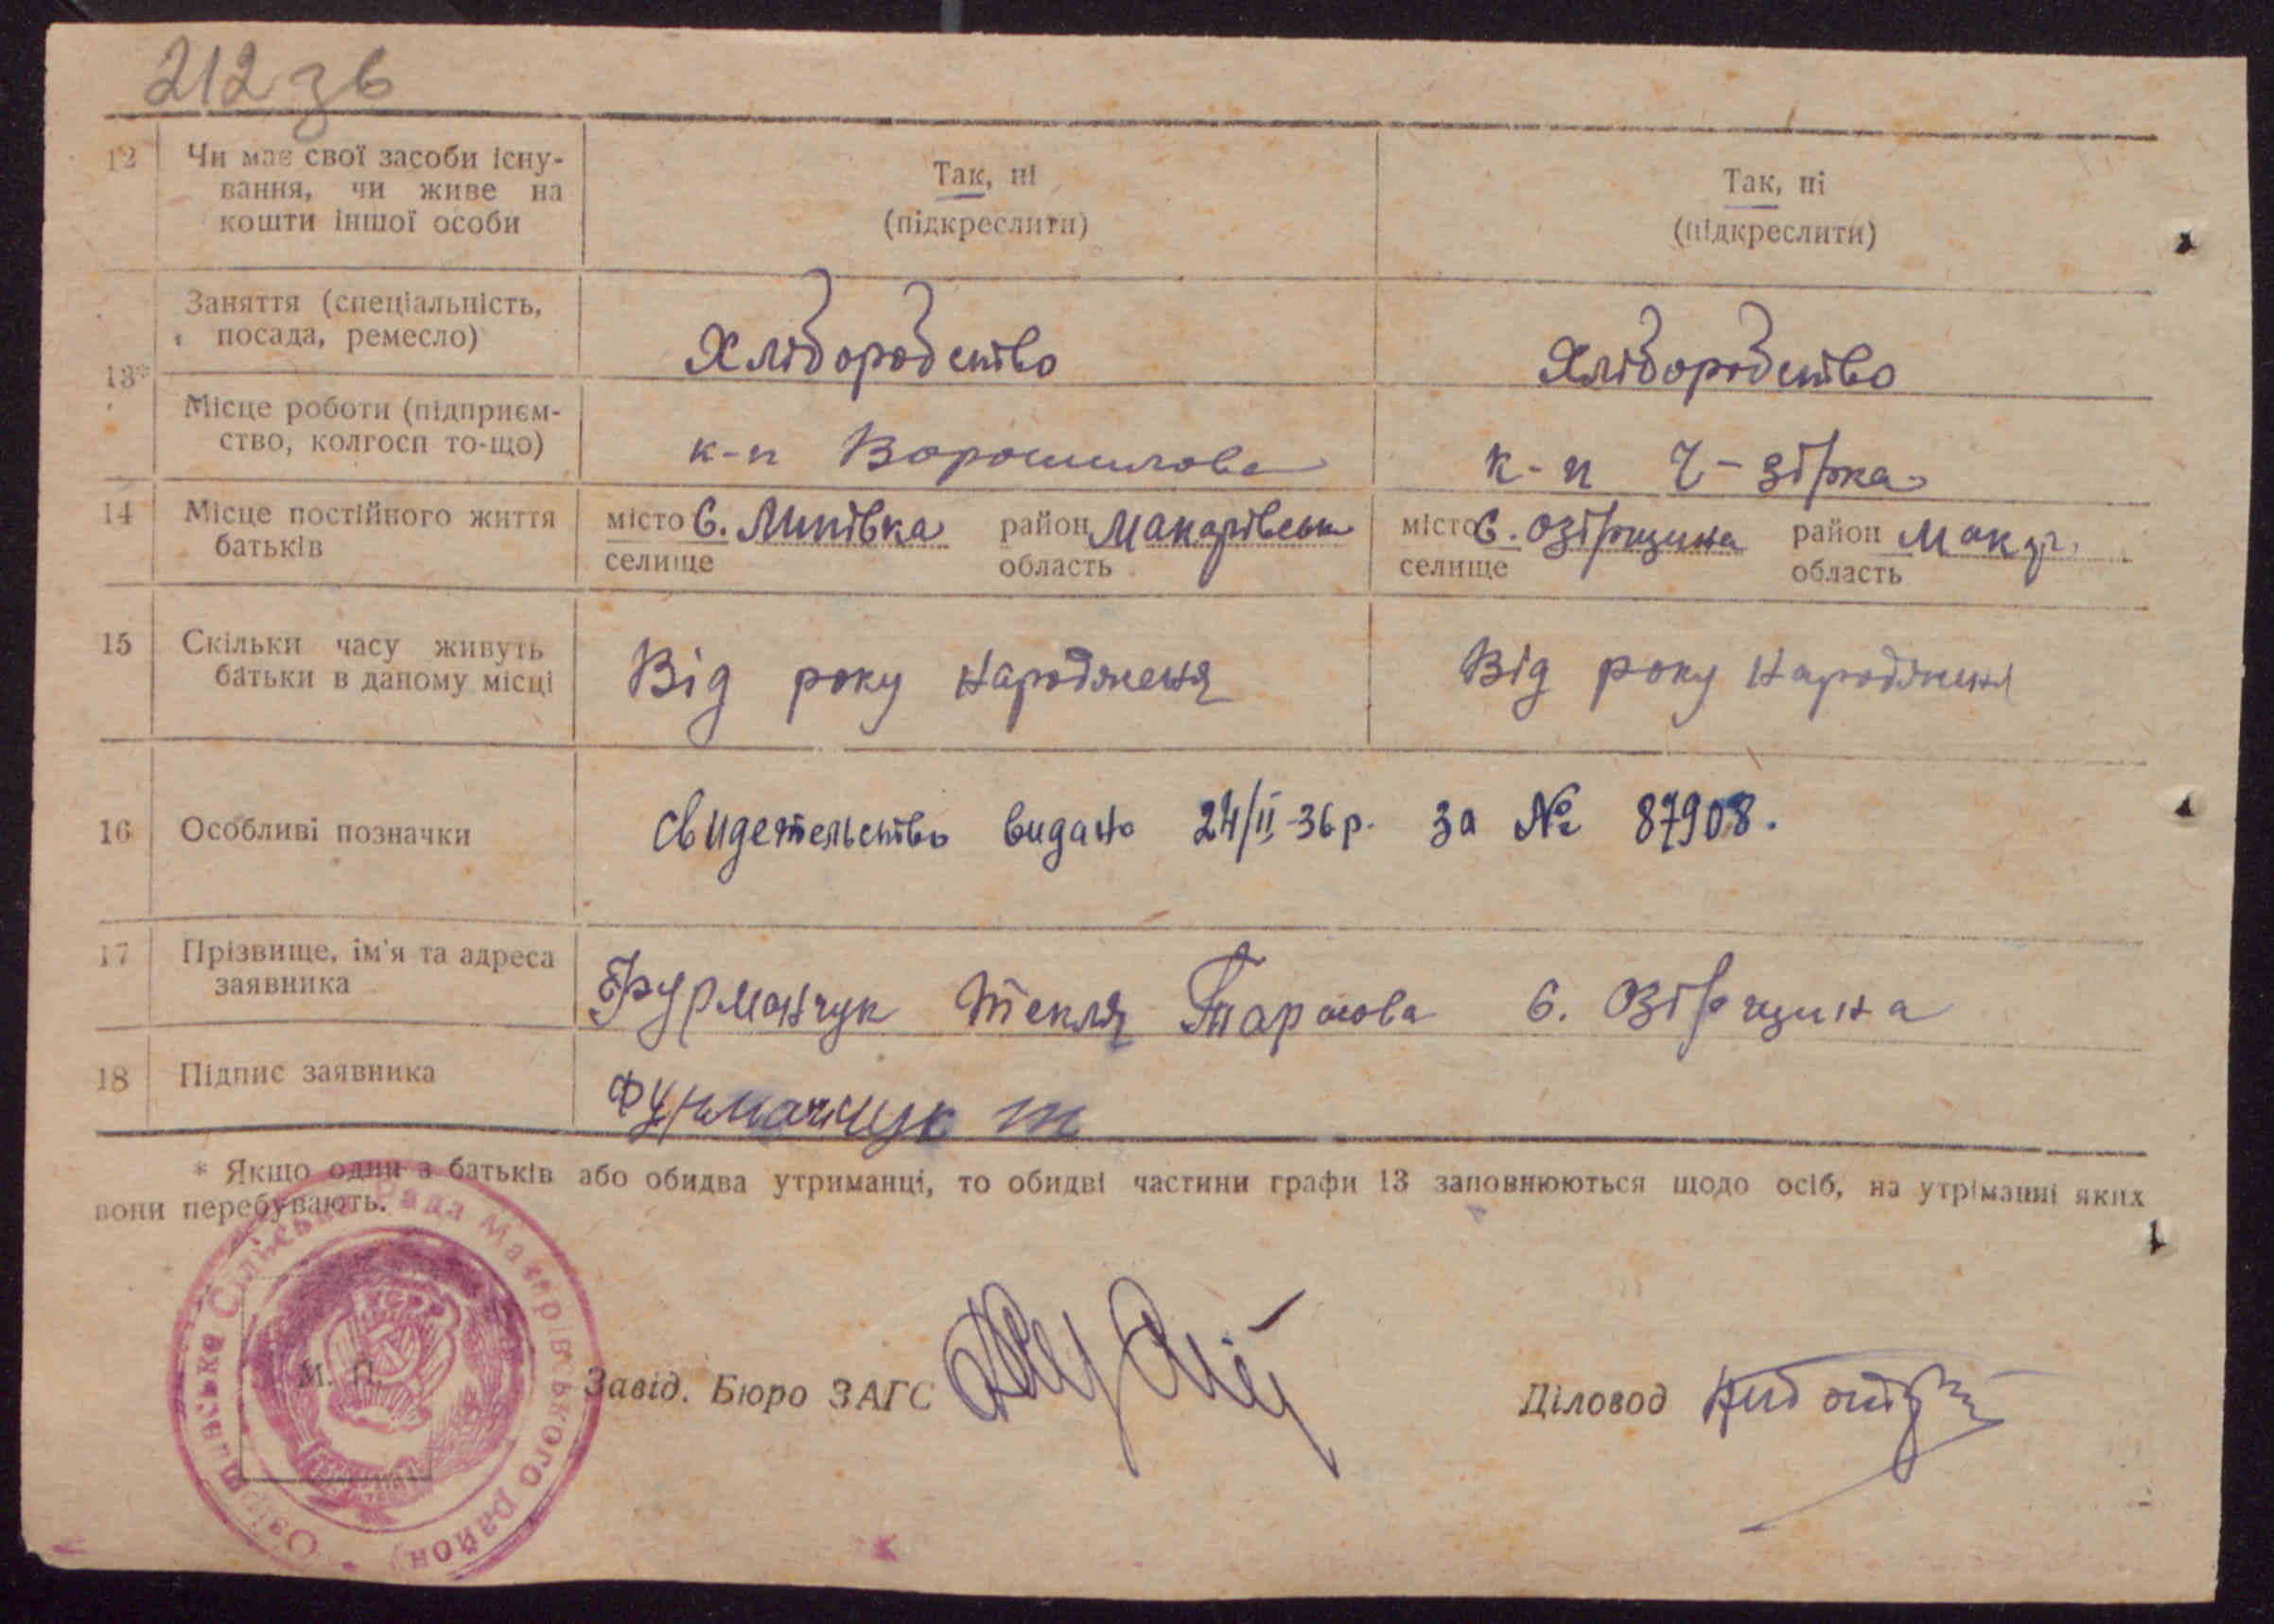 212 зв
12 Чи має свої засоби існу-
вання, чи живе на
кошти іншої особи
Так, ні
(підкреслити)
Так, ні
(підкреслити)
13*
Заняття (спеціальність,
посада, ремесло)
Хліборобство
Хліборобство
Місце роботи (підприєм-
ство, колгосп то-що)
к-п Ворошилова
к-п Ч-зірка
14 Місце постійного життя
батьків
місто с. Липівка район Макарівськ
селище область
місто с. Озірщина район Макар.
селище область
15 Скільки часу живуть
батьки в даному місці
Від року народженя
Від року народженя
16 Особливі позначки
Свидетельство видано 24/II-36 р. за № 87908.
17 Прізвище, ім'я та адреса
заявника
Фурманчук Текля Тарасова с. Озірщина
18 Підпис заявника
Фурманчук Т
* Якщо один з батьків або обидва утриманці, то обидві частини графи 13 заповнюються щодо осіб, на утріманні яких
вони перебувають.
Озірщинська Сільська Рада Макарівського район
УСРР
М. П.
Завід. Бюро ЗАГС
Діловод